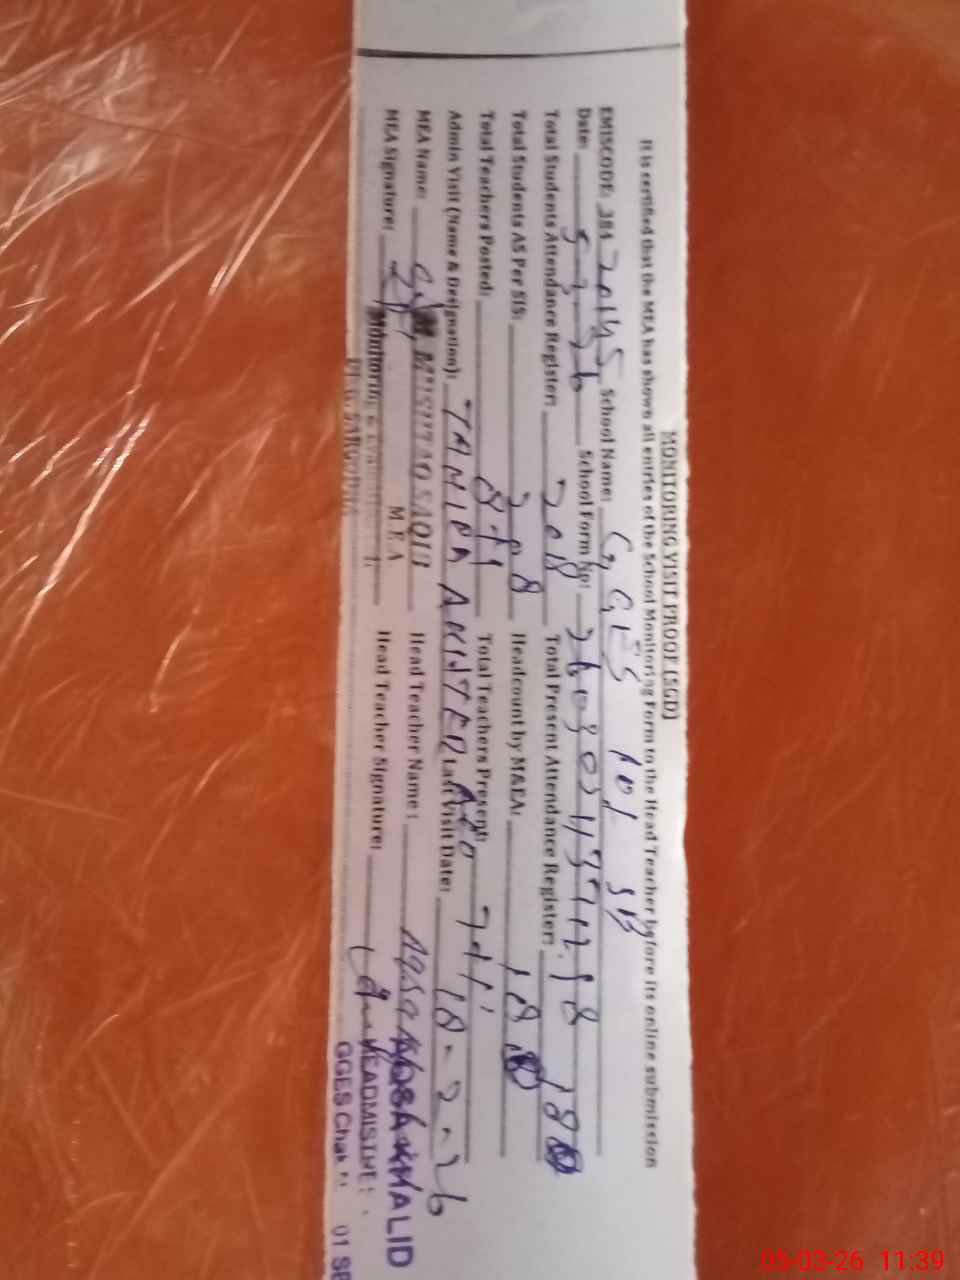 MONITORING VISIT PROOF (SGD)
It is certified that the MEA has shown all entries of the School Monitoring Form to the Head Teacher before its online submission
EMISCODE: 384 20145 School Name: GGES 101 SB
Date: 5-3-26 School Form No:
Total Students Attendance Register: 208 Total Present Attendance Register: 188
Total Students AS Per SIS: 208 Headcount by M&EA: 188
Total Teachers Posted: 8+1 Total Teachers Present: 7+1
Admin Visit (Name & Designation): TAHIRA AKHTER AEO Last Visit Date: 18-2-26
MEA Name: MUSHTAQ SAQIB Head Teacher Name: AQSA KHALID
M.E.A
MEA Signature: Head Teacher Signature:
Monitoring & HEADMISTRE
GGES Chak 01 SB
05-03-26 11:39